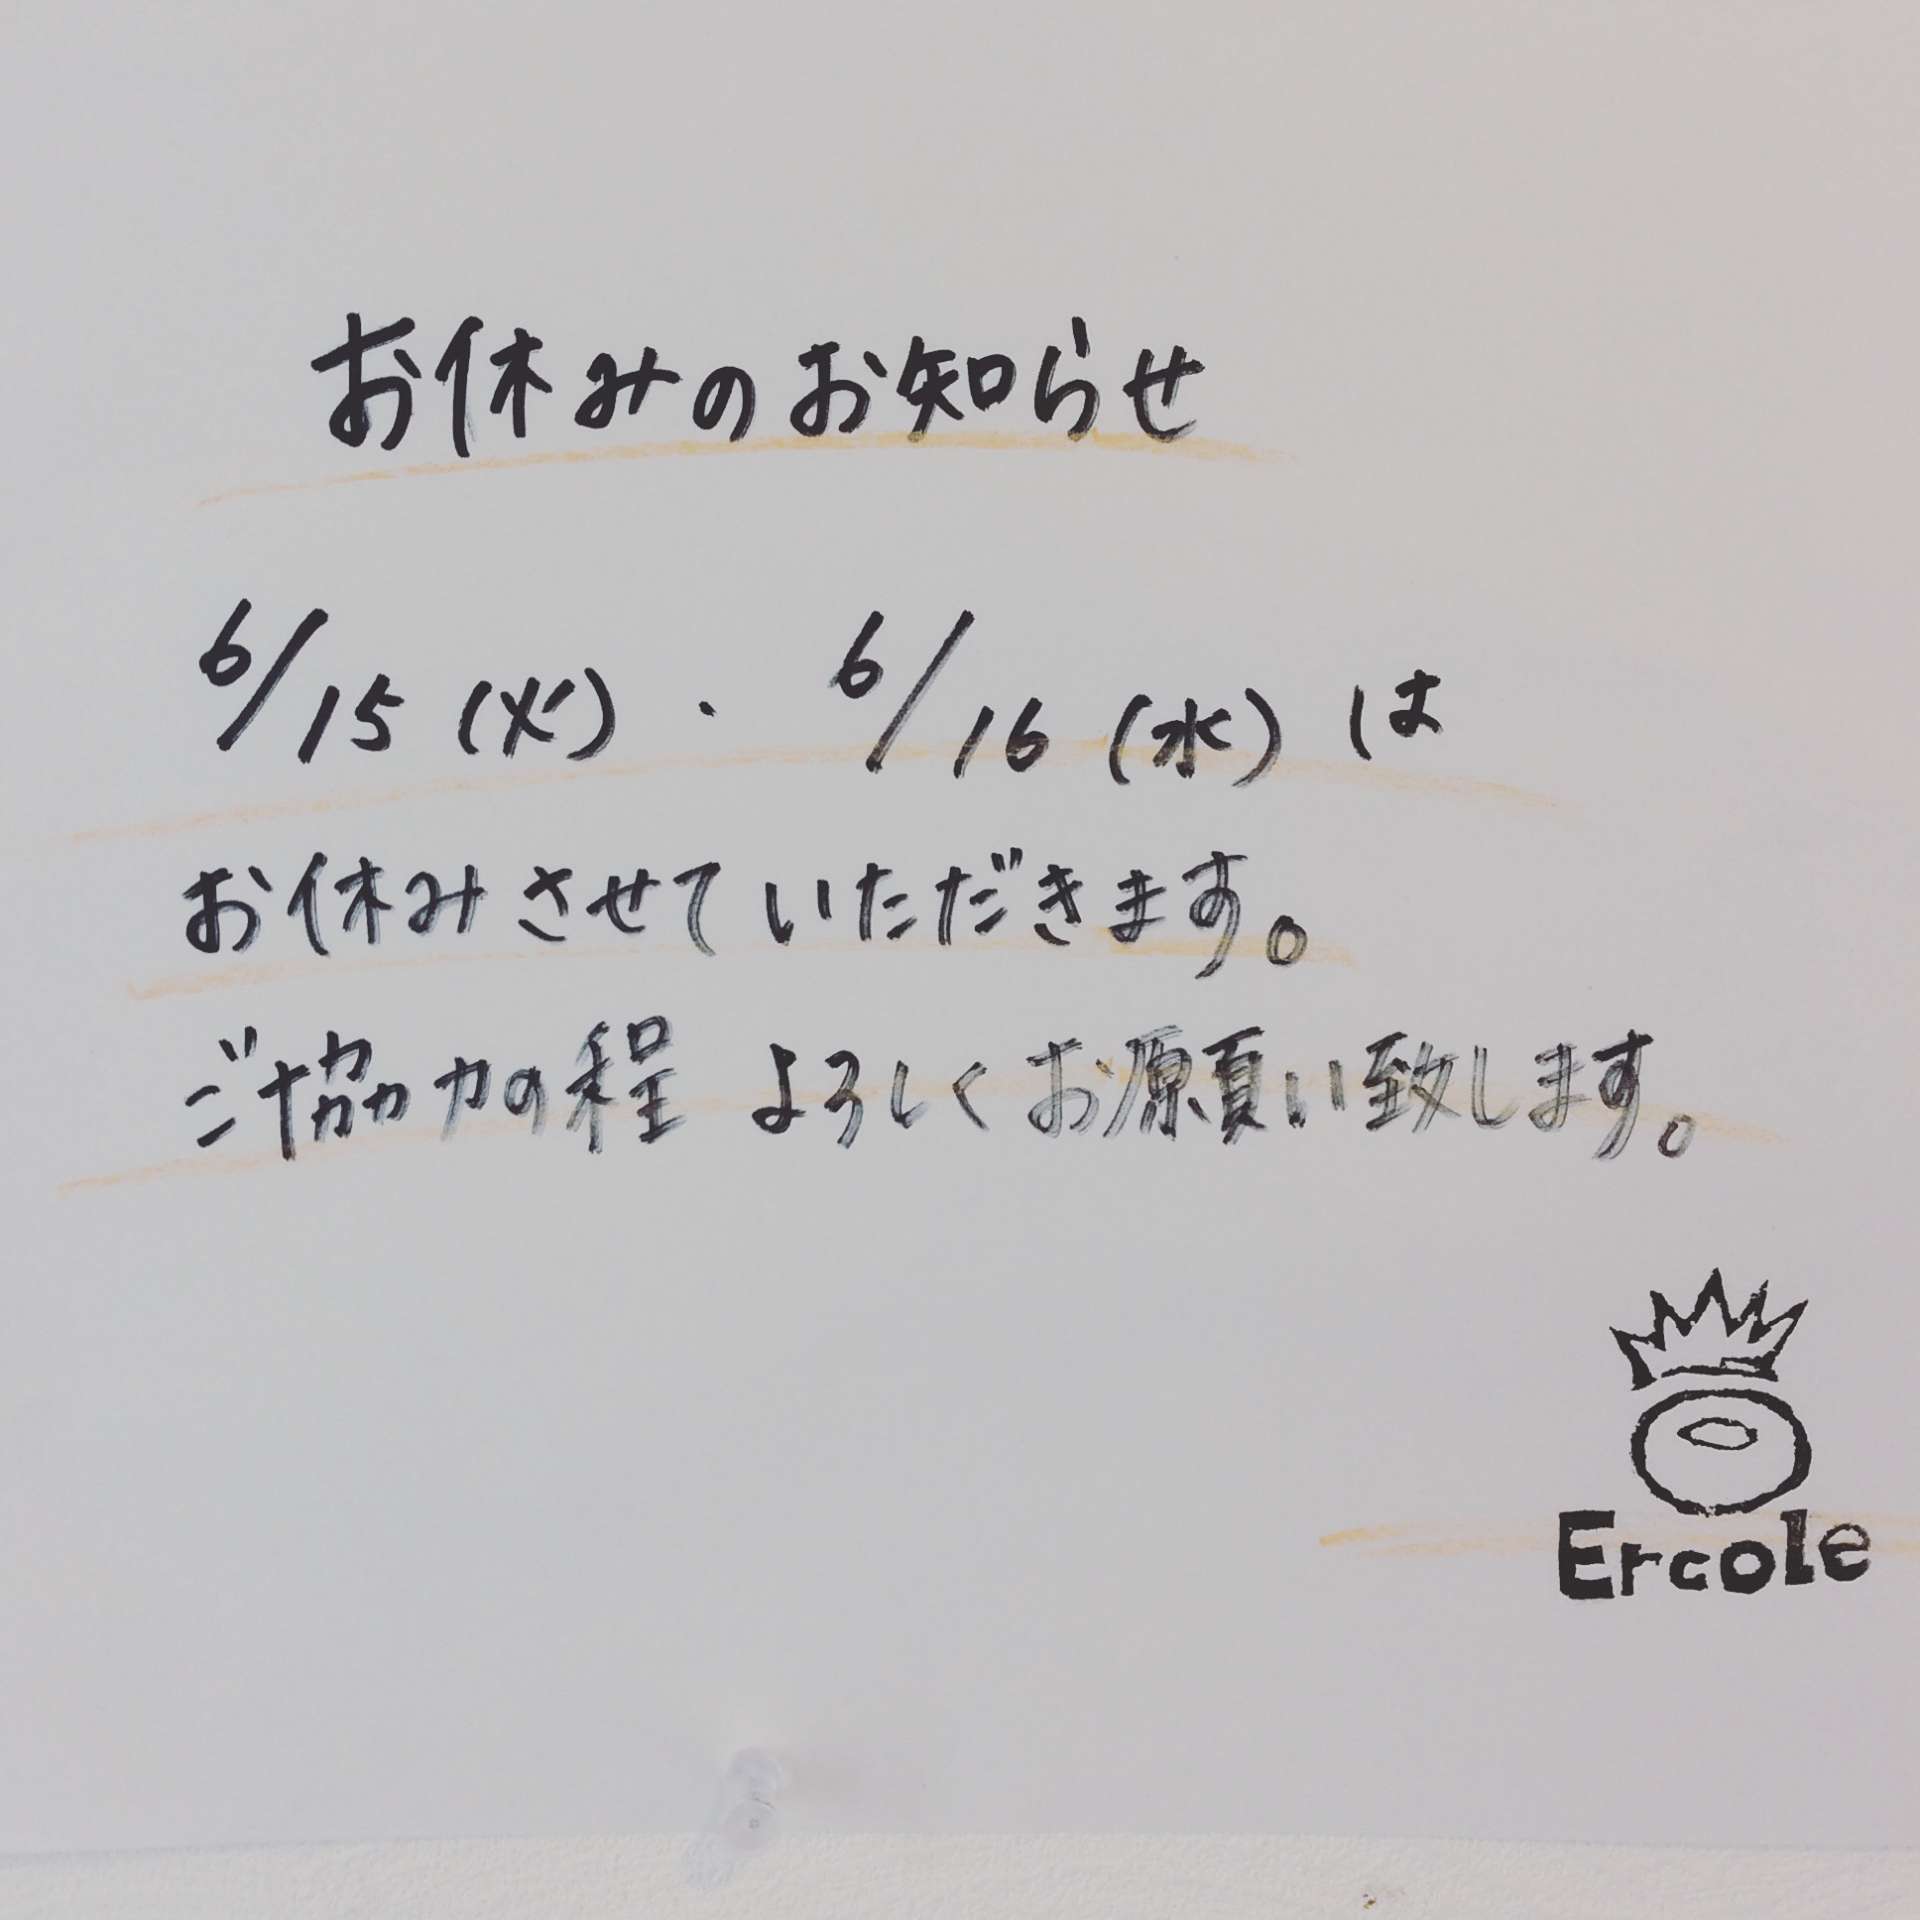 お休みのお知らせ
6/15 (火) ・ 6/16 (水) は
お休みさせていただきます。
ご協力の程 よろしくお願い致します。
Ercole